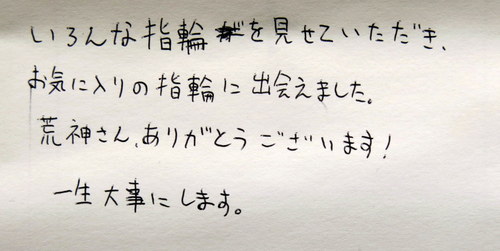 いろんな指輪を見せていただき、
お気に入りの指輪に出会えました。
荒神さん、ありがとうございます!
一生大事にします。